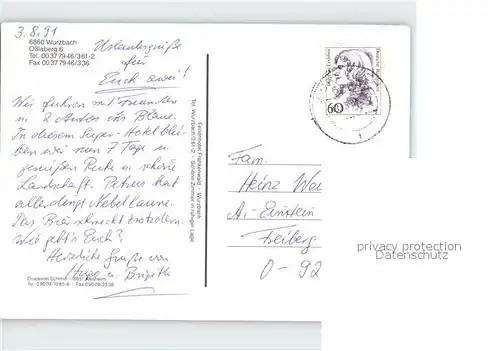 3.8.91
6860 Wurzbach
Oßlaberg 6
Tel. 00 37 79 46/361-2
Fax 00 37 79 46/336
Urlaubsgrüße
für
Euch zwei!
Wir fuhren mit Freunden
in 2 Autos ins Blaue.
In diesem Super-Hotel blei-
ben wir nun 7 Tage u.
genießen Ruhe u. schöne
Landschaft. Petrus hat
allerdings Nebellaune.
Das Bier schmeckt trotzdem.
Wie geht's Euch?
Herzliche Grüße von
Hugo u. Brigitte
Ferienhotel Frankenwald · Wurzbach
Tel. Wurzbach/361-2 · Schöne Zimmer in ruhiger Lage
60
Fam.
Heinz Wei
A.-Einstein
Freiberg
O-92
privacy protection
Datenschutz